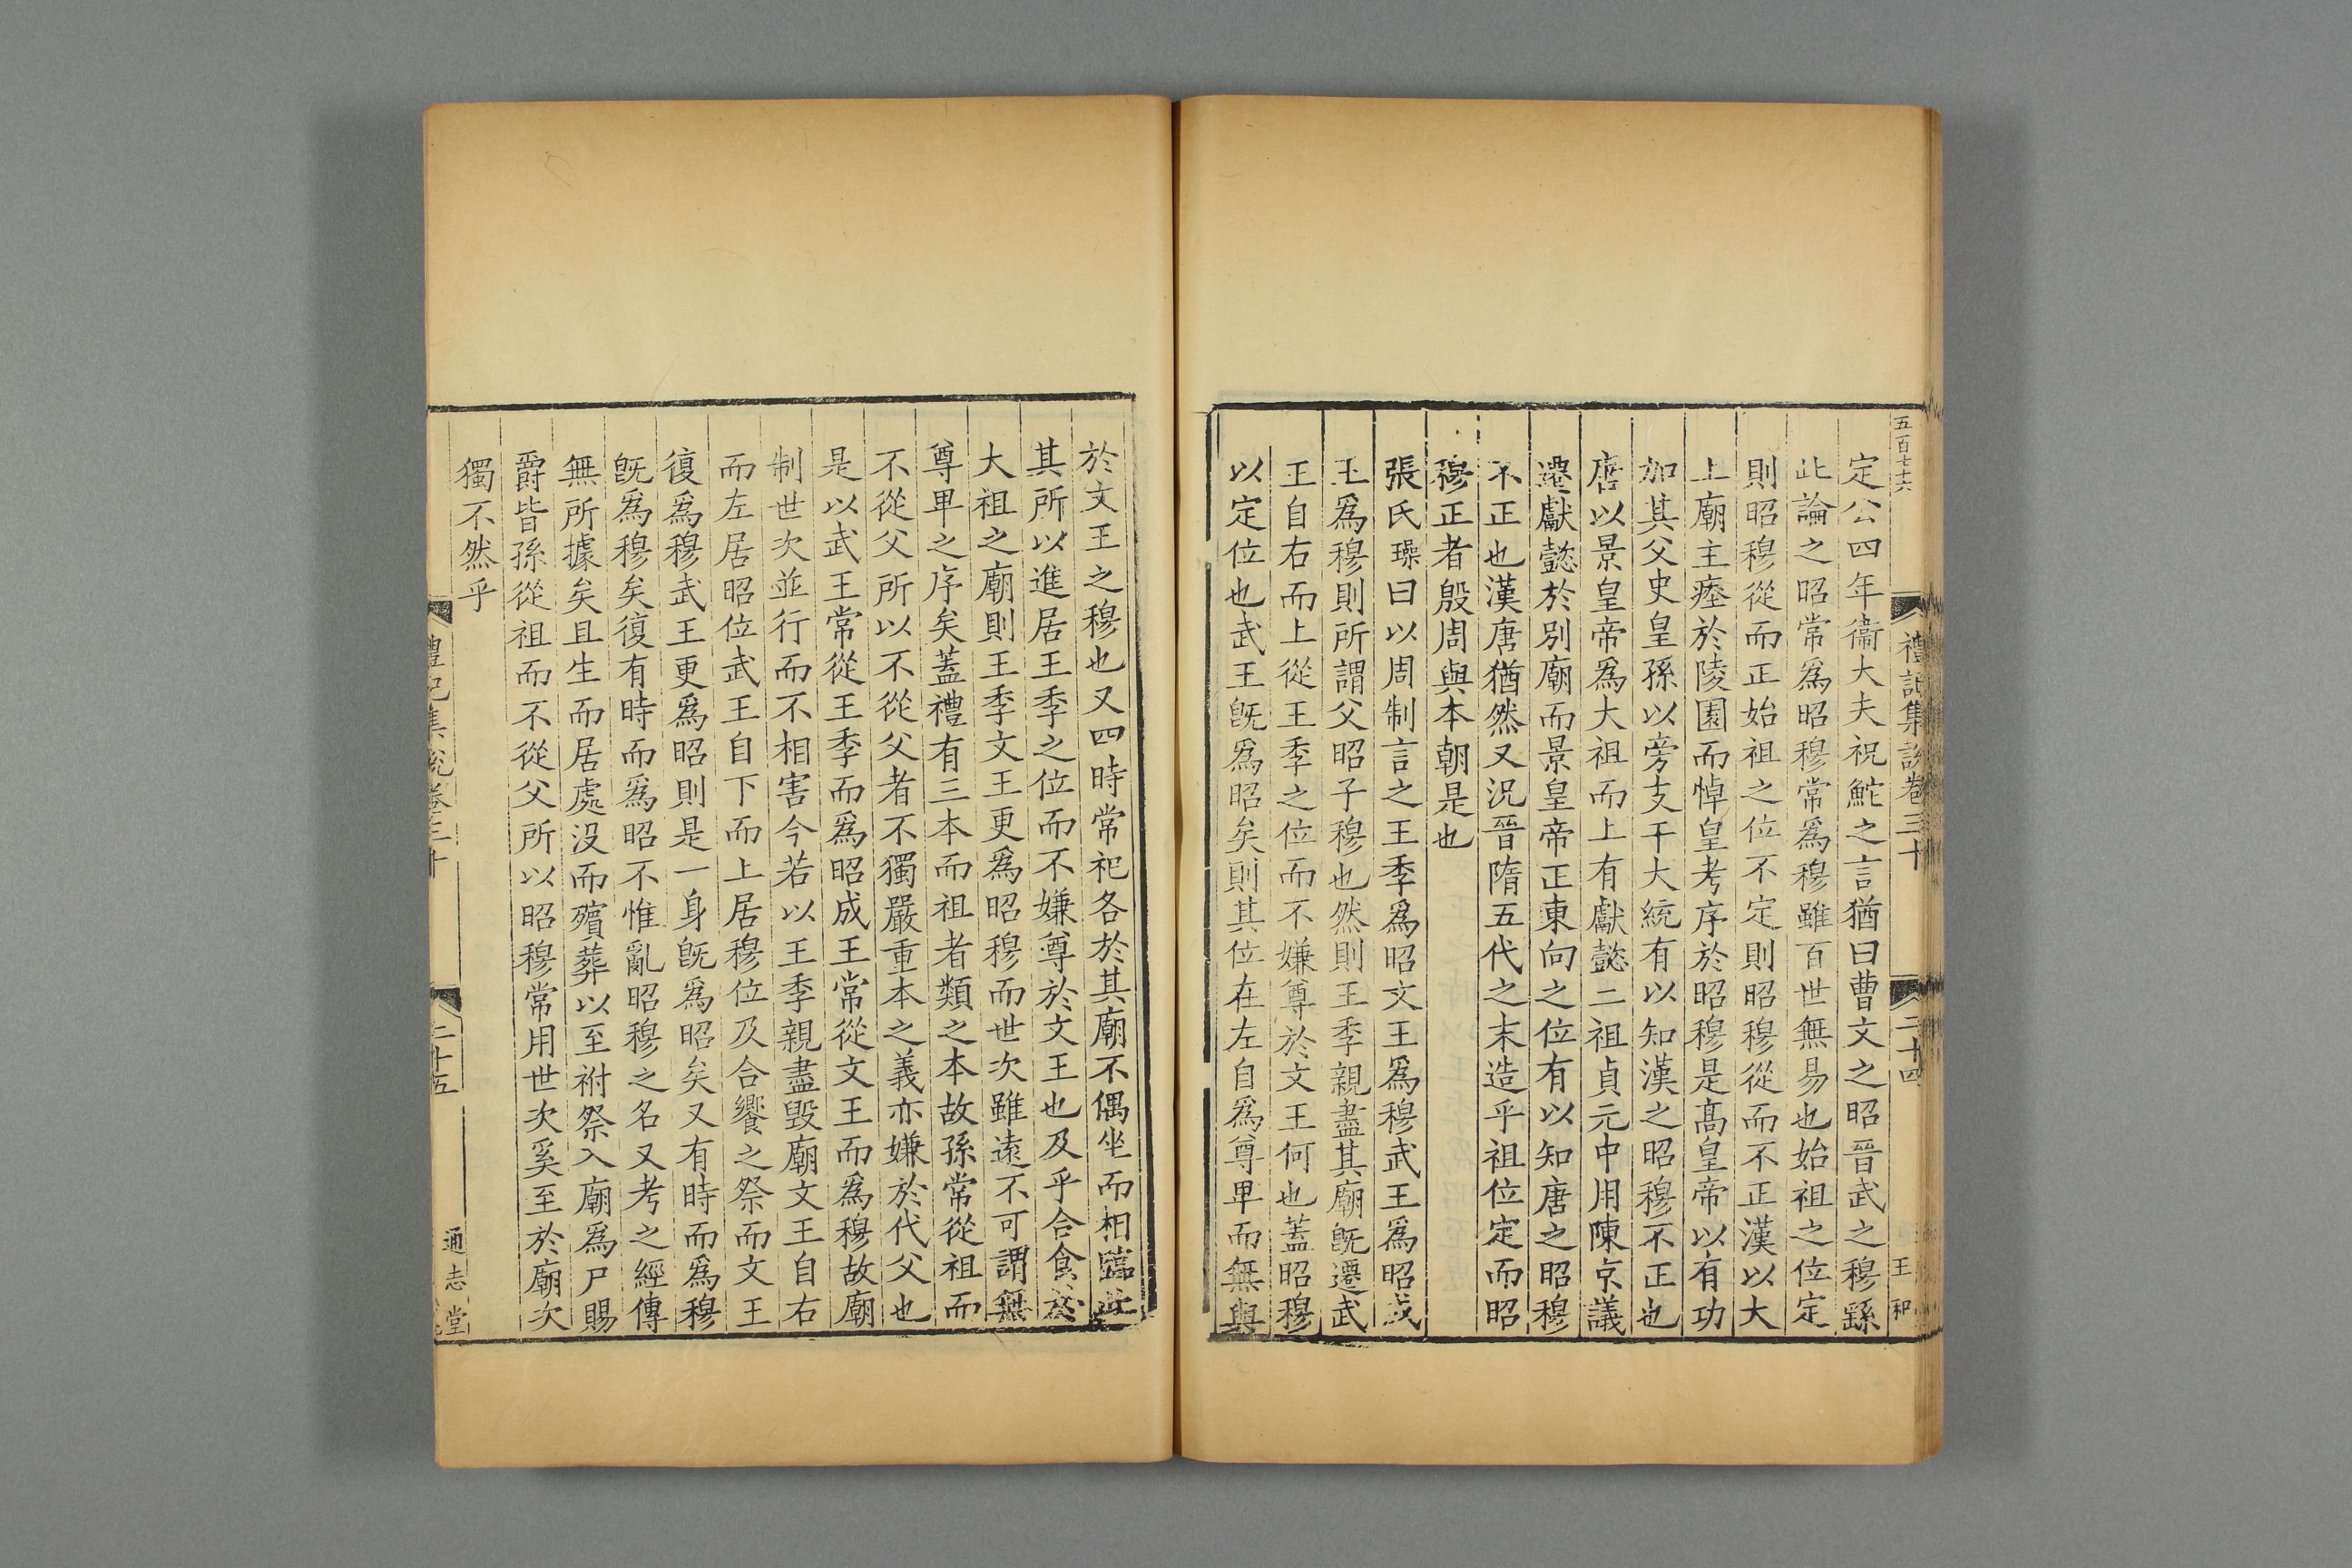 五百七十六
禮記集說卷三十
二十四
王 祁
定公四年衞大夫祝鮀之言猶曰曹文之昭晉武之穆繇
此論之昭常爲昭穆常爲穆雖百世無易也始祖之位定
則昭穆從而正始祖之位不定則昭穆從而不正漢以大
上廟主瘞於陵園而悼皇考序於昭穆是髙皇帝以有功
加其父史皇孫以旁支干大統有以知漢之昭穆不正也
唐以景皇帝爲大祖而上有獻懿二祖貞元中用陳京議
遷獻懿於別廟而景皇帝正東向之位有以知唐之昭穆
不正也漢唐猶然又況晉隋五代之末造乎祖位定而昭
穆正者殷周與本朝是也
張氏璪曰以周制言之王季爲昭文王爲穆武王爲昭成
王爲穆則所謂父昭子穆也然則王季親盡其廟旣遷武
王自右而上從王季之位而不嫌尊於文王何也蓋昭穆
以定位也武王旣爲昭矣則其位在左自爲尊卑而無與
於文王之穆也又四時常祀各於其廟不偶坐而相臨此
其所以進居王季之位而不嫌尊於文王也及乎合食於
大祖之廟則王季文王更爲昭穆而世次雖遠不可謂無
尊卑之序矣蓋禮有三本而祖者類之本故孫常從祖而
不從父所以不從父者不獨嚴重本之義亦嫌於代父也
是以武王常從王季而爲昭成王常從文王而爲穆故廟
制世次並行而不相害今若以王季親盡毁廟文王自右
而左居昭位武王自下而上居穆位及合饗之祭而文王
復爲穆武王更爲昭則是一身旣爲昭矣又有時而爲穆
旣爲穆矣復有時而爲昭不惟亂昭穆之名又考之經傳
無所據矣且生而居處没而殯葬以至祔祭入廟爲尸賜
爵皆孫從祖而不從父所以昭穆常用世次奚至於廟次
獨不然乎
禮記集說卷三十
二十五
通志堂